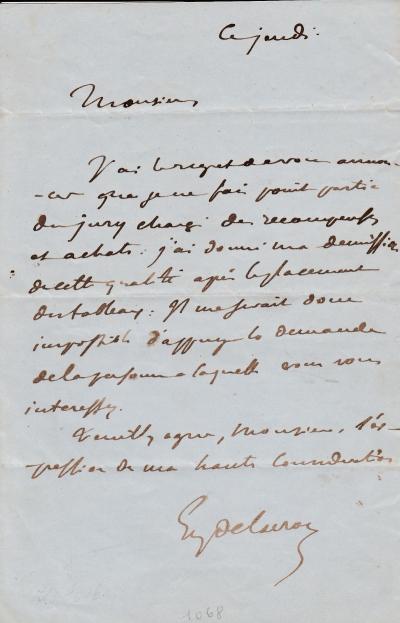 Ce jeudi.
Monsieur
J'ai le regret de vous annon-
-cer que je ne fais point partie
du jury chargé des récompenses
et achats: j'ai donné ma démission
de cette qualité après le placement
des tableaux: Il me serait donc
impossible d'appuyer la demande
de la personne à laquelle vous vous
intéressez.
Veuillez agréer, Monsieur, l'ex-
pression de ma haute considération
Eug Delacroix
1068